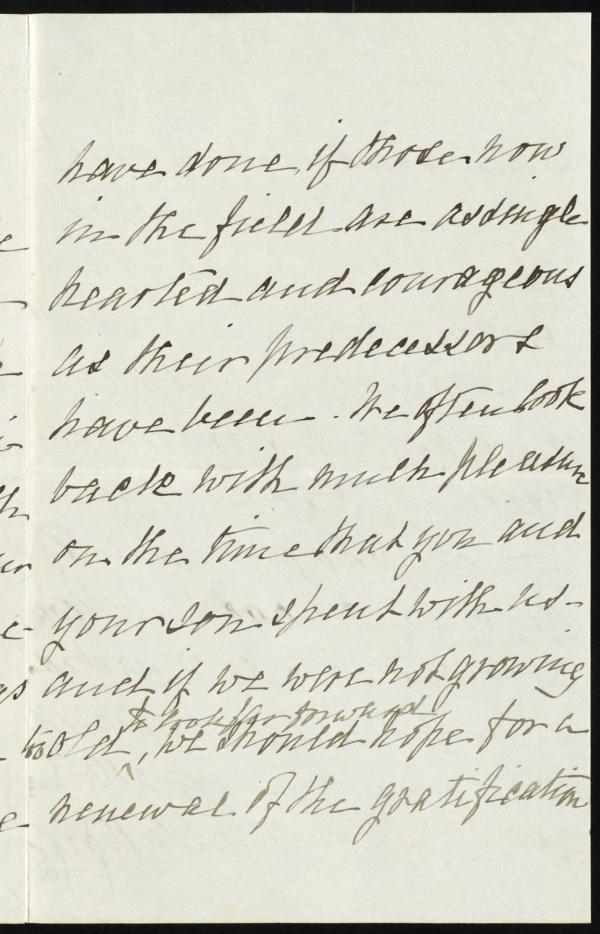 have done, if those now
in the field are as single
hearted and courageous
as their predecessors
have been. We often look
back with much pleasure
on the time that you and
your son spent with us -
and if we were not growing
to look far forward
too old ^, we should hope for a
renewal of the gratification